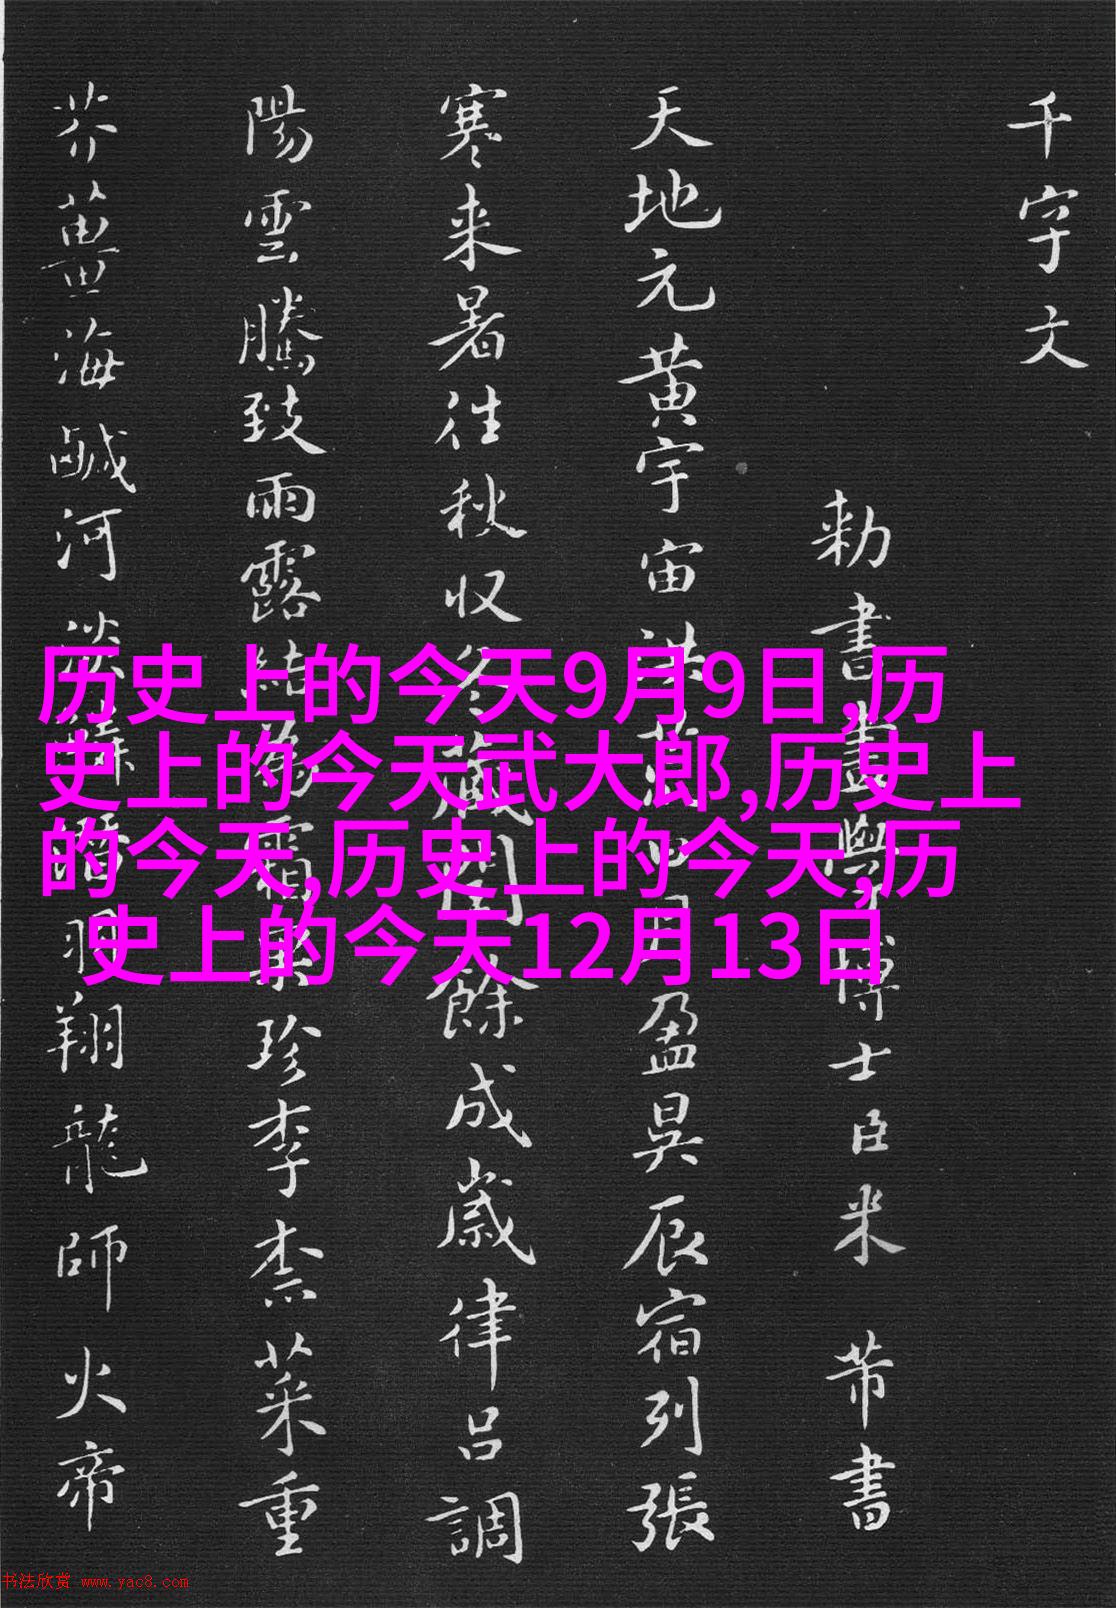 千字文
勅書畫學博士臣米芾書
天地元黄宇宙洪荒日月盈昃辰宿列張
寒来暑往秋収冬藏閏餘成歳律吕調
陽雲騰致雨露結為霜菓珍李柰菜重
芥薑海鹹河淡鱗潛羽翔龍師火帝
历史上的今天9月9日,历
史上的今天武大郎,历史上
的今天,历史上的今天,历
史上的今天12月13日
书法欣赏 www.yac8.com